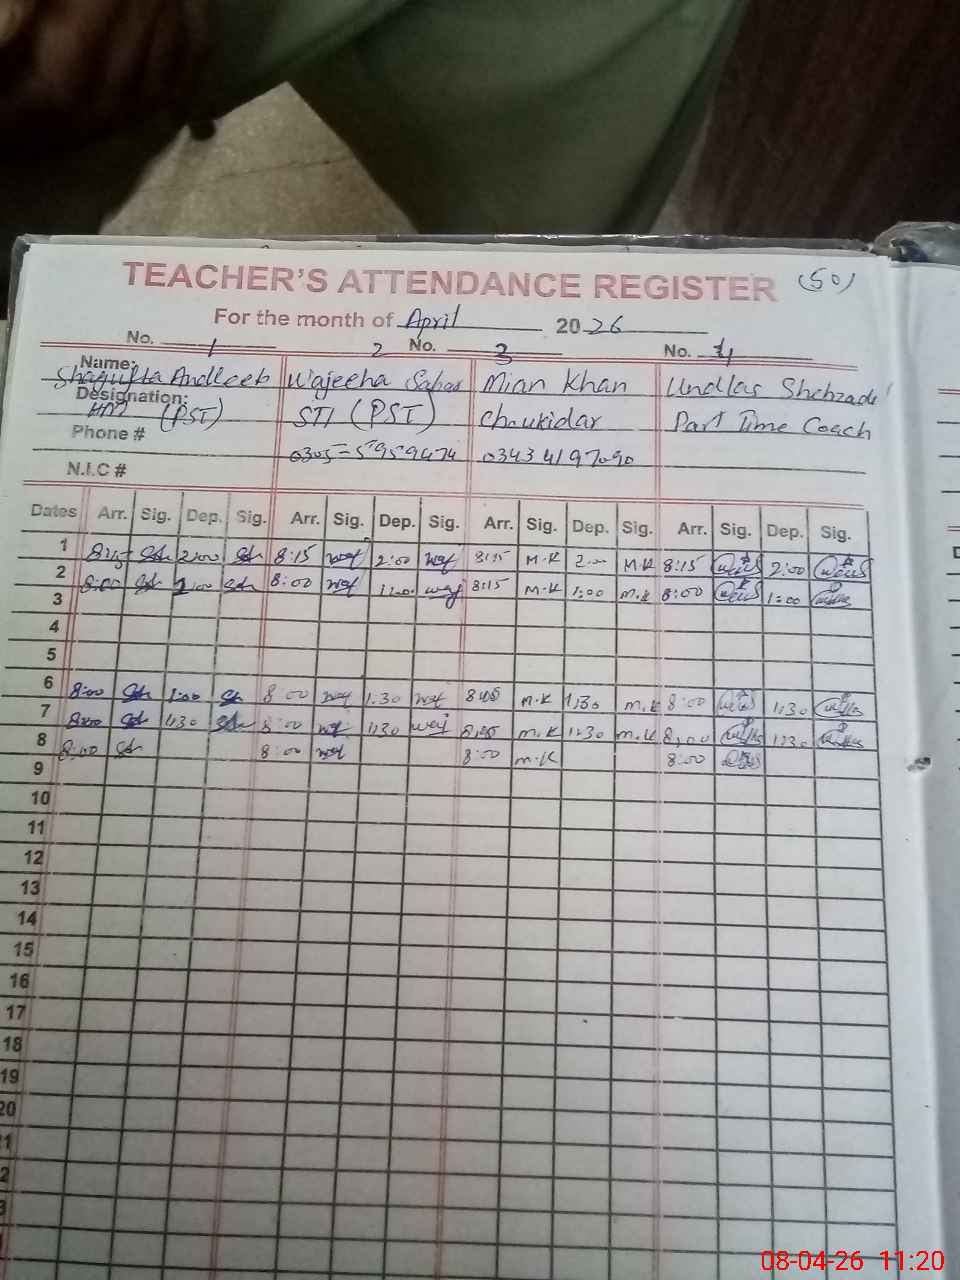 TEACHER'S ATTENDANCE REGISTER (50)
For the month of April 2026
No. 1 2 No. 3 No. 4
Name: Shagufta Andleeb Wajeeha Mian Khan Undlas Shehzadi
Designation: (PST) STI (PST) Choukidar Part Time Coach
Phone # 0305=5959474 03434197090
N.I.C #
Dates Arr. Sig. Dep. Sig. Arr. Sig. Dep. Sig. Arr. Sig. Dep. Sig. Arr. Sig. Dep. Sig.
1 8:15 2:00 8:15 2:00 8:15 M.K 2:00 M.K 8:15 2:00
2 8:00 1:00 8:00 1:00 8:15 M.K 1:00 M.K 8:00 1:00
3
4
5
6 8:00 1:00 8:00 1:30 M.K 1:30 M.K 8:00 1:30
7 8:00 1:30 8:00 1:30 M.K 1:30 M.K 8:00 1:30
8 8:00 8:00 8:00 M.K 8:00
9
10
11
12
13
14
15
16
17
18
19
20
1
2
3
08-04-26 11:20